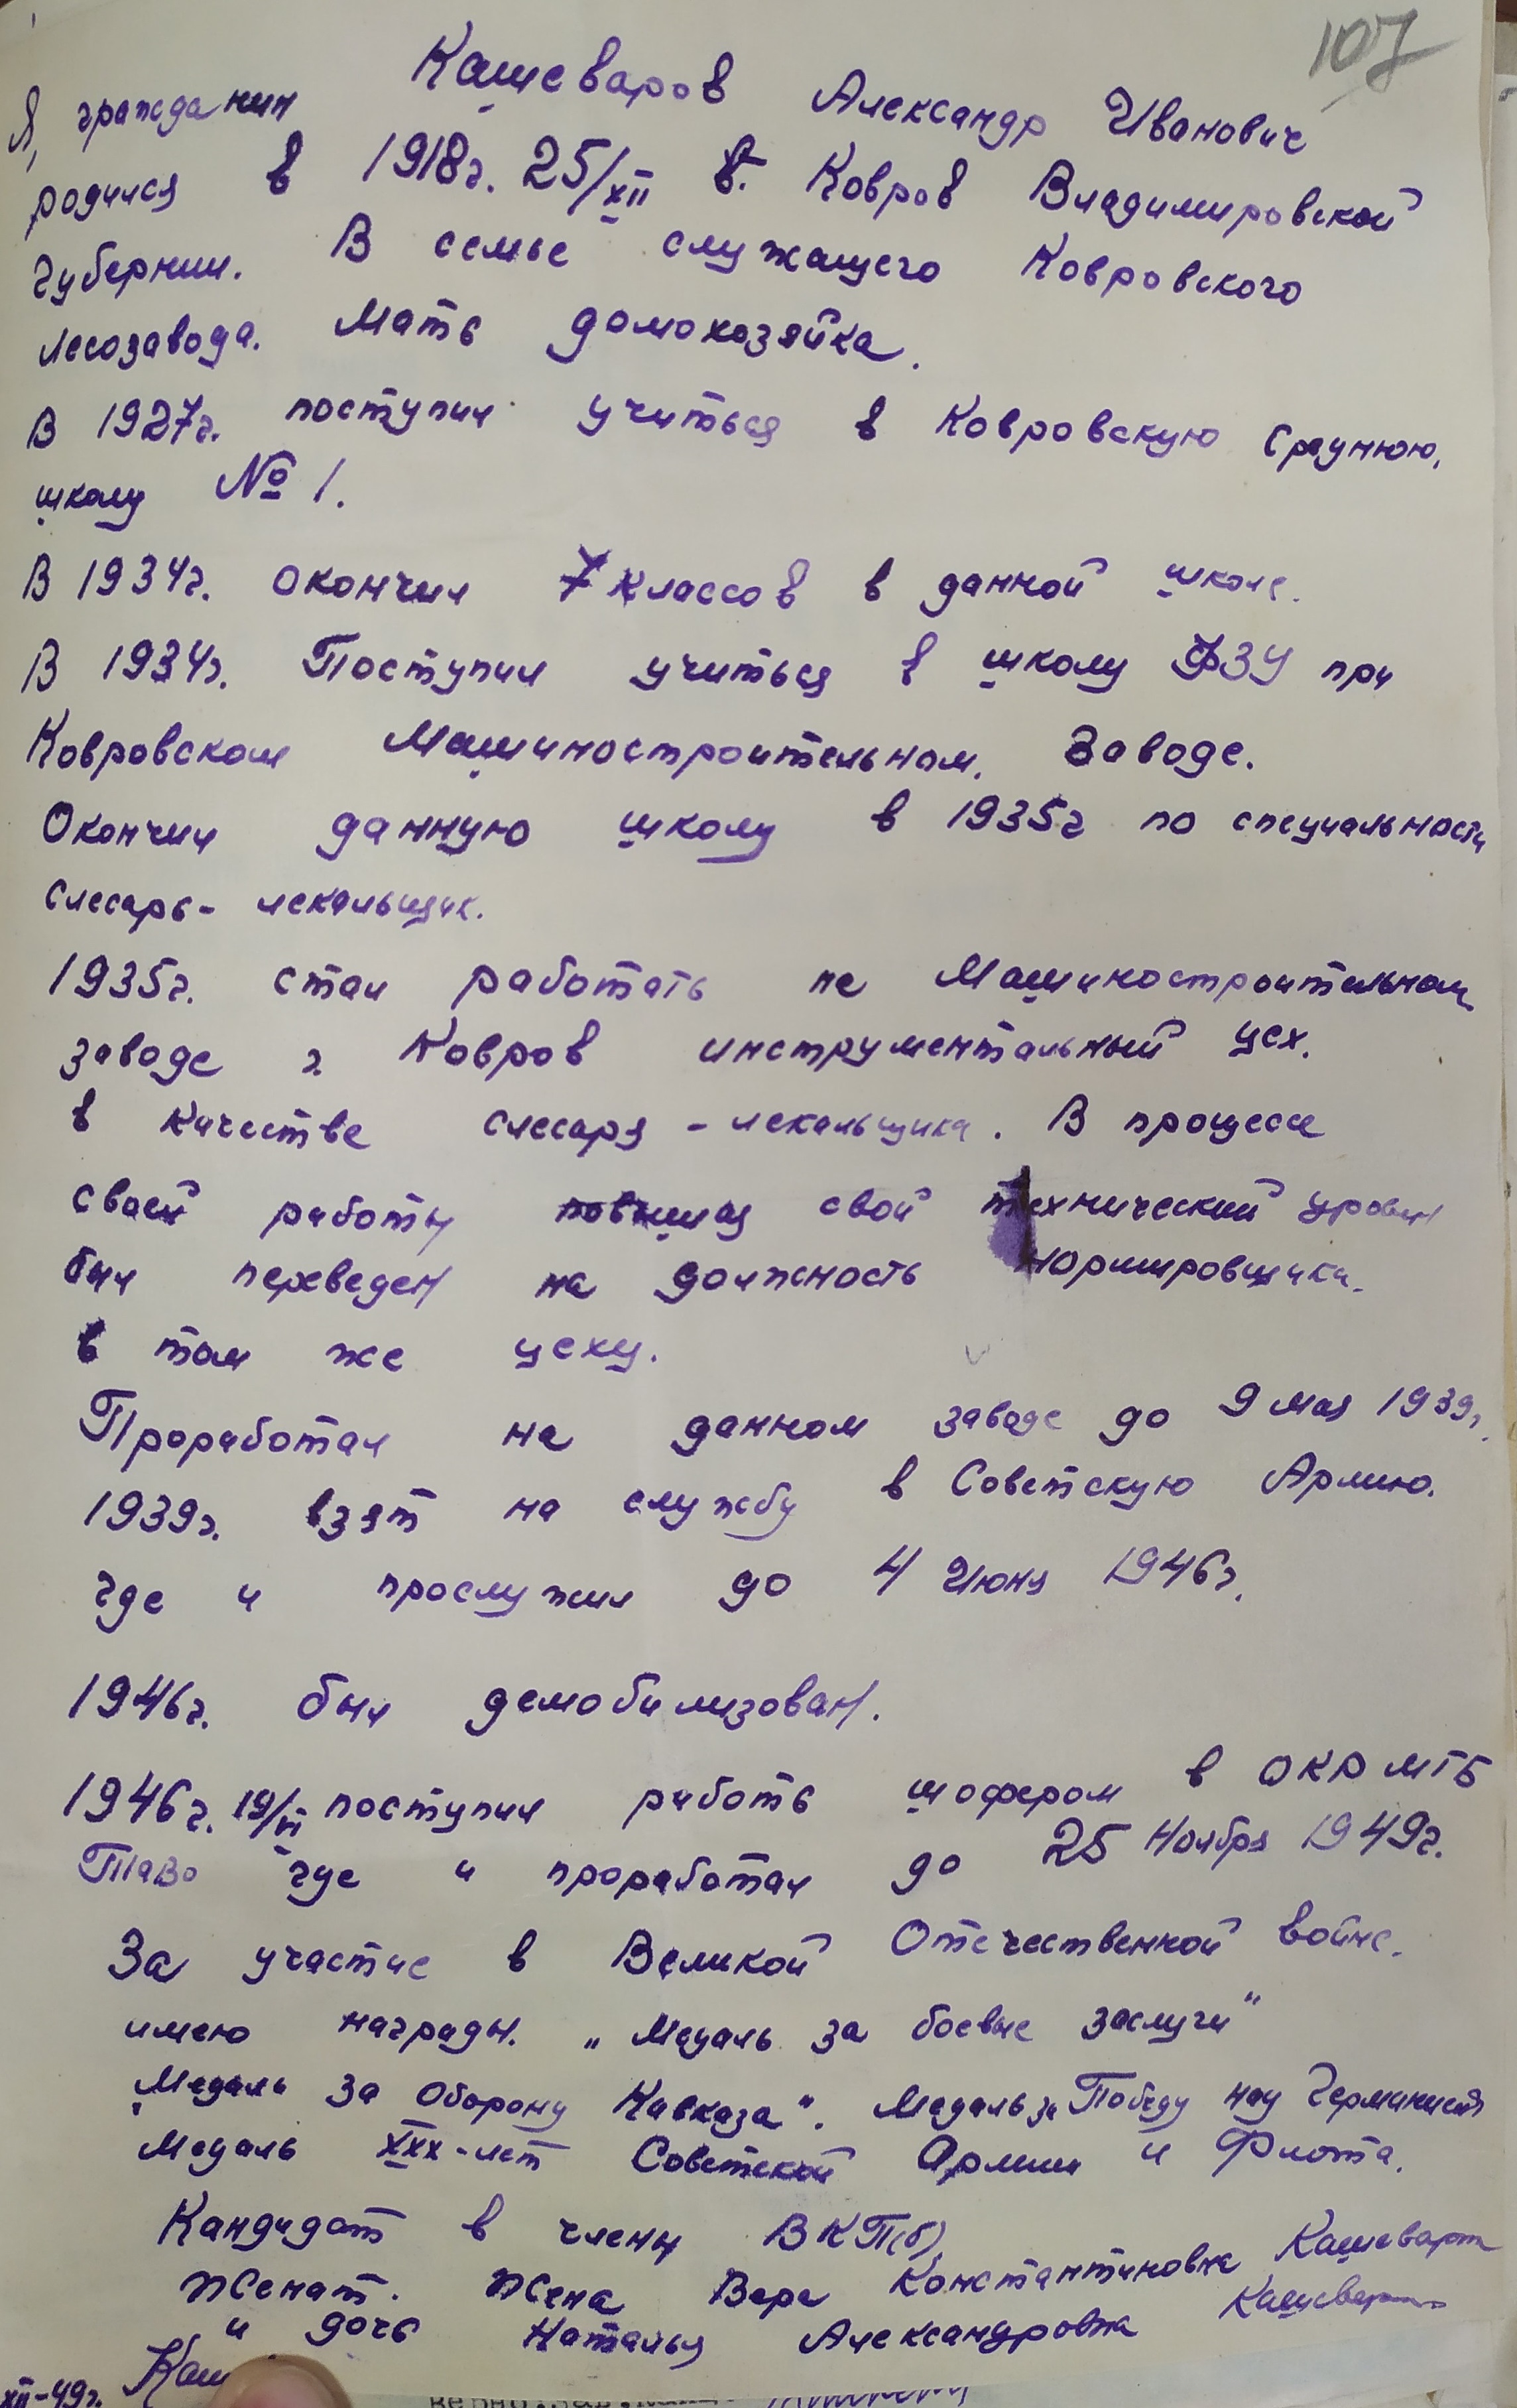 107
Я, гражданин Кашеваров Александр Иванович
родился в 1918г. 25/XII в. Ковров Владимировской
Губернии. В семье служащего Ковровского
лесозавода. Мать домохозяйка.
В 1927г. поступил учиться в Ковровскую Среднюю,
школу № 1.
В 1934г. окончил 7 классов в данной школе.
В 1934г. Поступил учиться в школу ФЗУ при
Ковровском Машиностроительном. Заводе.
Окончил данную школу в 1935г по специальности
Слесарь - лекальщик.
1935г. стал работать не Машиностроительном
заводе г. Ковров инструментальный цех.
в качестве слесаря - лекальщика. В процессе
своей работы повышая свой технический уровен
был переведен на должность нормировщика.
в том же цеху.
Проработал на данном заводе до 9 мая 1939г.
1939г. взят на службу в Советскую Армию.
где и прослужил до 4 Июня 1946г.
1946г. был демобилизован.
1946г. 19/VI поступил работь шофером в ОКР МГБ
ТаВО где и проработал до 25 Ноября 1949г.
За участие в Великой Отечественной войне.
имею награды. „Медаль за боевые заслуги"
„Медаль За Оборону Кавказа". Медаль за Победу над Германией
Медаль XXX-лет Советской Армии и Флота.
Кандидат в члены ВКП(б)
Женат. Жена Вера Константиновна Кашеварова
и дочь Наталья Александровна Кашеварова
XII-49г. Каш